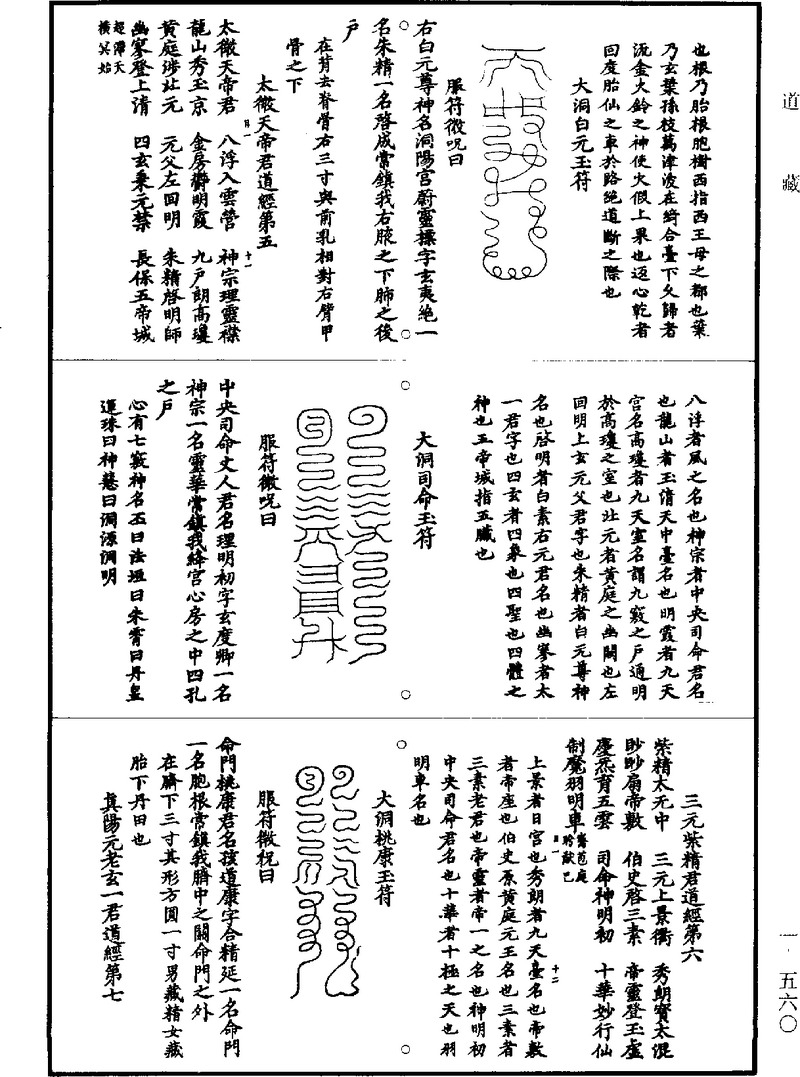 道藏
也根乃胎根胞樹西指西王母之都也葉
乃玄葉孫枝萬津波在綺合臺下父歸者
流金火鈴之神使火假上果也迈心乾者
回度胎仙之車於路絕道斷之際也
大洞白元玉符
服符微呪曰
右白元尊神名洞陽宮蔚靈摽字玄夷絕一
名朱精一名啓成常鎮我右腋之下肺之後
戶
在背去脊骨右三寸與前乳相對右臂甲
骨之下
太微天帝君道經第五
太微天帝君 八浮入雲營 神宗理靈襟
龍山秀玉京 金房鬱明霞 九戶朗高瓊
黃庭涉北元 元父左回明 朱精啓明師
幽寥登上清 四玄乘元禁 長保五帝城
超潭天
橫冥始
八浮者風之名也神宗者中央司命君名
也龍山者玉清天中臺名也明霞者九天
宮名高瓊者九天室名謂九竅之戶通明
於高瓊之室也北元者黃庭之幽闕也左
回明上玄元父君字也朱精者白元尊神
名也啓明者白素右元君名也幽寥者太
一君字也四玄者四象也四聖也四體之
神也五帝城指五臟也
大洞司命玉符
服符微呪曰
中央司命丈人君名理明初字玄度卿一名
神宗一名靈華常鎮我絳宮心房之中四孔
之戶
心有七竅神名五曰法堩曰朱霄曰丹皇
運珠曰神慧曰洞源洞明
三元紫精君道經第六
紫精太元中 三元上景衢 秀朗寶太混
眇眇扇帝敷 伯史啓三素 帝靈登玉虛
慶炁育五雲 司命神明初 十華妙行仙
制魔羽明車
上景者日宮也秀朗者九天臺名也帝敷
者帝座也伯史原黃庭元王名也三素者
三素老君也帝靈者帝一之名也神明初
中央司命君名也十華者十極之天也羽
明車名也
大洞桃康玉符
服符微祝曰
命門桃康君名孩道康字合精延一名命門
一名胞根常鎮我臍中之關命門之外
在臍下三寸其形方圓一寸男藏精女藏
胎下丹田也
真陽元老玄一君道經第七
一·五六〇